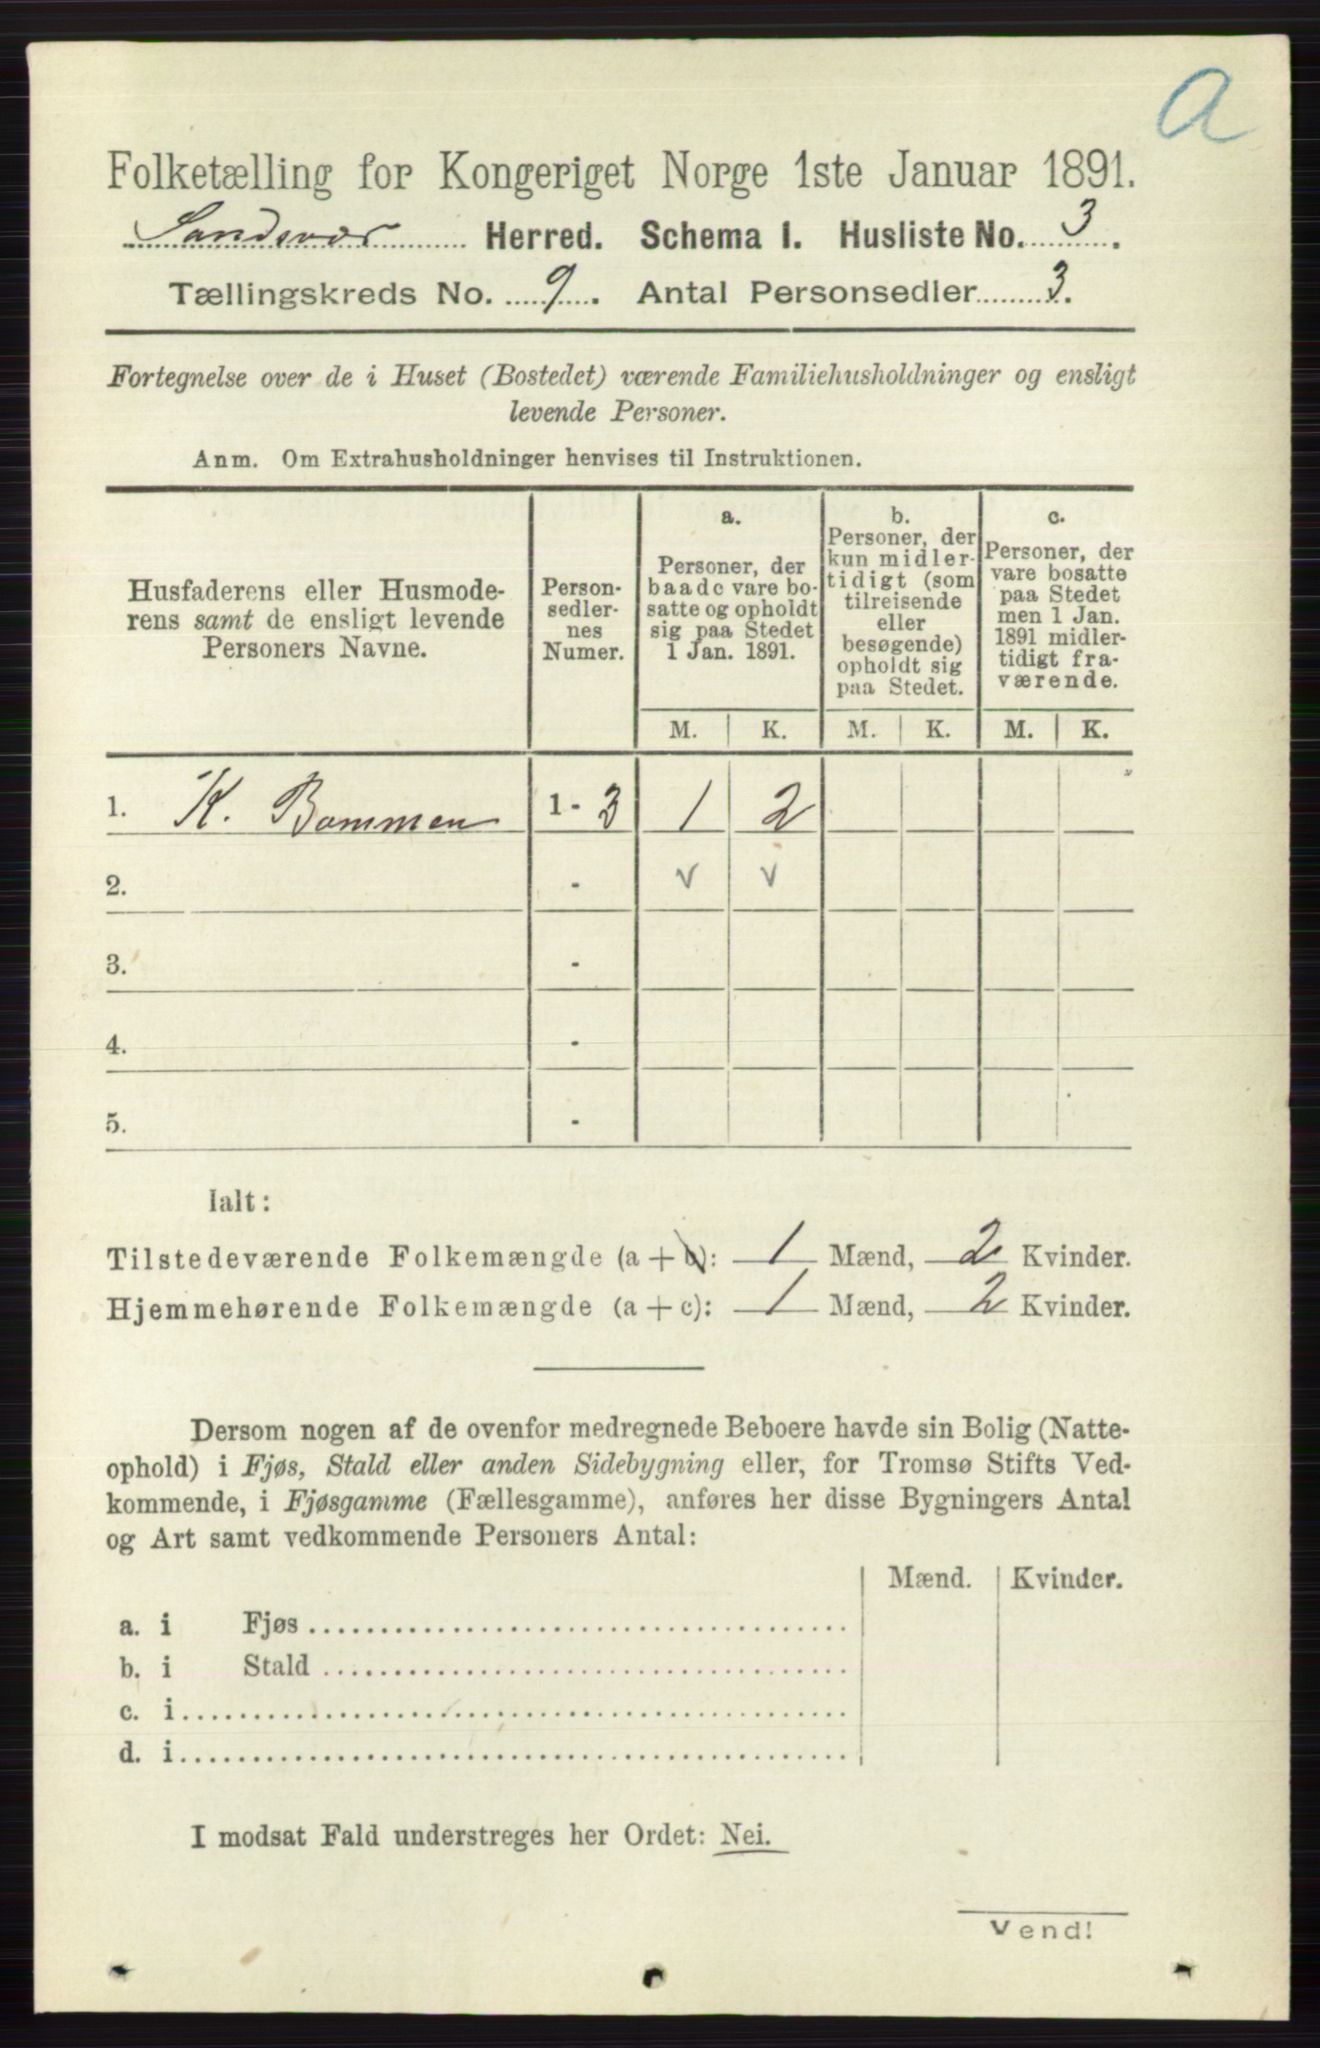 a
Folketælling for Kongeriget Norge 1ste Januar 1891.
Sandsvær Herred. Schema 1. Husliste No. 3.
Tællingskreds No. 9. Antal Personsedler 3.
Fortegnelse over de i Huset (Bostedet) værende Familiehusholdninger og ensligt
levende Personer.
Anm. Om Extrahusholdninger henvises til Instruktionen.
Husfaderens eller Husmode-
rens samt de ensligt levende
Personers Navne.
Person-
sedler-
nes
Numer.
a.
Personer, der
baade vare bo-
satte og opholdt
sig paa Stedet
1 Jan. 1891.
b.
Personer, der
kun midler-
tidigt (som
tilreisende
eller
besøgende)
opholdt sig
paa Stedet.
c.
Personer, der
vare bosatte
paa Stedet
men 1 Jan.
1891 midler-
tidigt fra-
værende.
M. K. M. K. M. K.
1. K. Bammen 1 - 3 1 2
2. - v v
3. -
4. -
5. -
Ialt:
Tilstedeværende Folkemængde (a + b): 1 Mænd, 2 Kvinder.
Hjemmehørende Folkemængde (a + c): 1 Mænd, 2 Kvinder.
Dersom nogen af de ovenfor medregnede Beboere havde sin Bolig (Natte-
ophold) i Fjøs, Stald eller anden Sidebygning eller, for Tromsø Stifts Ved-
kommende, i Fjøsgamme (Fællesgamme), anføres her disse Bygningers Antal
og Art samt vedkommende Personers Antal:
Mænd. Kvinder.
a. i Fjøs
b. i Stald
c. i
d. i
I modsat Fald understreges her Ordet: Nei.
Vend!